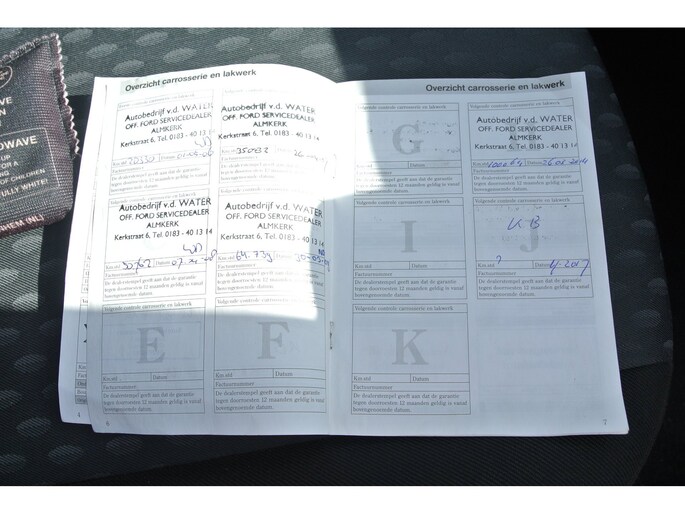 Overzicht carrosserie en lakwerk
Autobedrijf v.d. WATER
OFF. FORD SERVICEDEALER
ALMKERK
Kerkstraat 6, Tel. 0183 - 40 13 14
Km.std Datum
De dealerstempel geeft aan dat de garantie
tegen doorroesten 12 maanden geldig is vanaf
bovengenoemde datum.
Autobedrijf v.d. WATER
OFF. FORD SERVICEDEALER
ALMKERK
Kerkstraat 6, Tel. 0183 - 40 13 14
Km.std Datum
De dealerstempel geeft aan dat de garantie
tegen doorroesten 12 maanden geldig is vanaf
bovengenoemde datum.
Volgende controle carrosserie en lakwerk
Autobedrijf v.d. WATER
OFF. FORD SERVICEDEALER
ALMKERK
Kerkstraat 6, Tel. 0183 - 40 13 14
Km.std 30762 Datum
Factuurnummer
De dealerstempel geeft aan dat de garantie
tegen doorroesten 12 maanden geldig is vanaf
bovengenoemde datum.
Volgende controle carrosserie en lakwerk
Autobedrijf v.d. WATER
OFF. FORD SERVICEDEALER
ALMKERK
Kerkstraat 6, Tel. 0183 - 40 13 14
Km.std 64.739 Datum
Factuurnummer
De dealerstempel geeft aan dat de garantie
tegen doorroesten 12 maanden geldig is vanaf
bovengenoemde datum.
Volgende controle carrosserie en lakwerk
E
Km.std Datum
Factuurnummer
De dealerstempel geeft aan dat de garantie
tegen doorroesten 12 maanden geldig is vanaf
bovengenoemde datum.
Volgende controle carrosserie en lakwerk
F
Km.std Datum
Factuurnummer
De dealerstempel geeft aan dat de garantie
tegen doorroesten 12 maanden geldig is vanaf
bovengenoemde datum.
4
6
Overzicht carrosserie en lakwerk
Volgende controle carrosserie en lakwerk
G
Km.std Datum
Factuurnummer
De dealerstempel geeft aan dat de garantie
tegen doorroesten 12 maanden geldig is vanaf
bovengenoemde datum.
Volgende controle carrosserie en lakwerk
Autobedrijf v.d. WATER
OFF. FORD SERVICEDEALER
ALMKERK
Kerkstraat 6, Tel. 0183 - 40 13 14
Km.std Datum
Factuurnummer
De dealerstempel geeft aan dat de garantie
tegen doorroesten 12 maanden geldig is vanaf
bovengenoemde datum.
Volgende controle carrosserie en lakwerk
I
Km.std Datum
Factuurnummer
De dealerstempel geeft aan dat de garantie
tegen doorroesten 12 maanden geldig is vanaf
bovengenoemde datum.
Volgende controle carrosserie en lakwerk
J
Km.std ? Datum
Factuurnummer
De dealerstempel geeft aan dat de garantie
tegen doorroesten 12 maanden geldig is vanaf
bovengenoemde datum.
Volgende controle carrosserie en lakwerk
K
Km.std Datum
Factuurnummer
De dealerstempel geeft aan dat de garantie
tegen doorroesten 12 maanden geldig is vanaf
bovengenoemde datum.
7